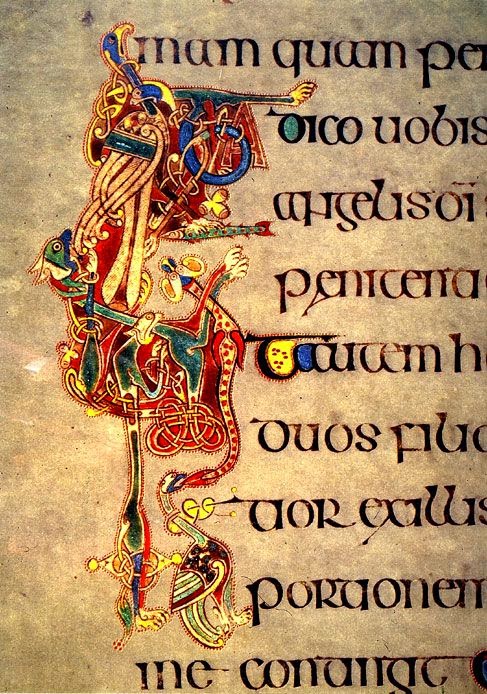 mam quam per
Ita dico uobis
angelis dī s
penitentia
Ait autem h
duos filio
tior ex illis
portionem
me contingit